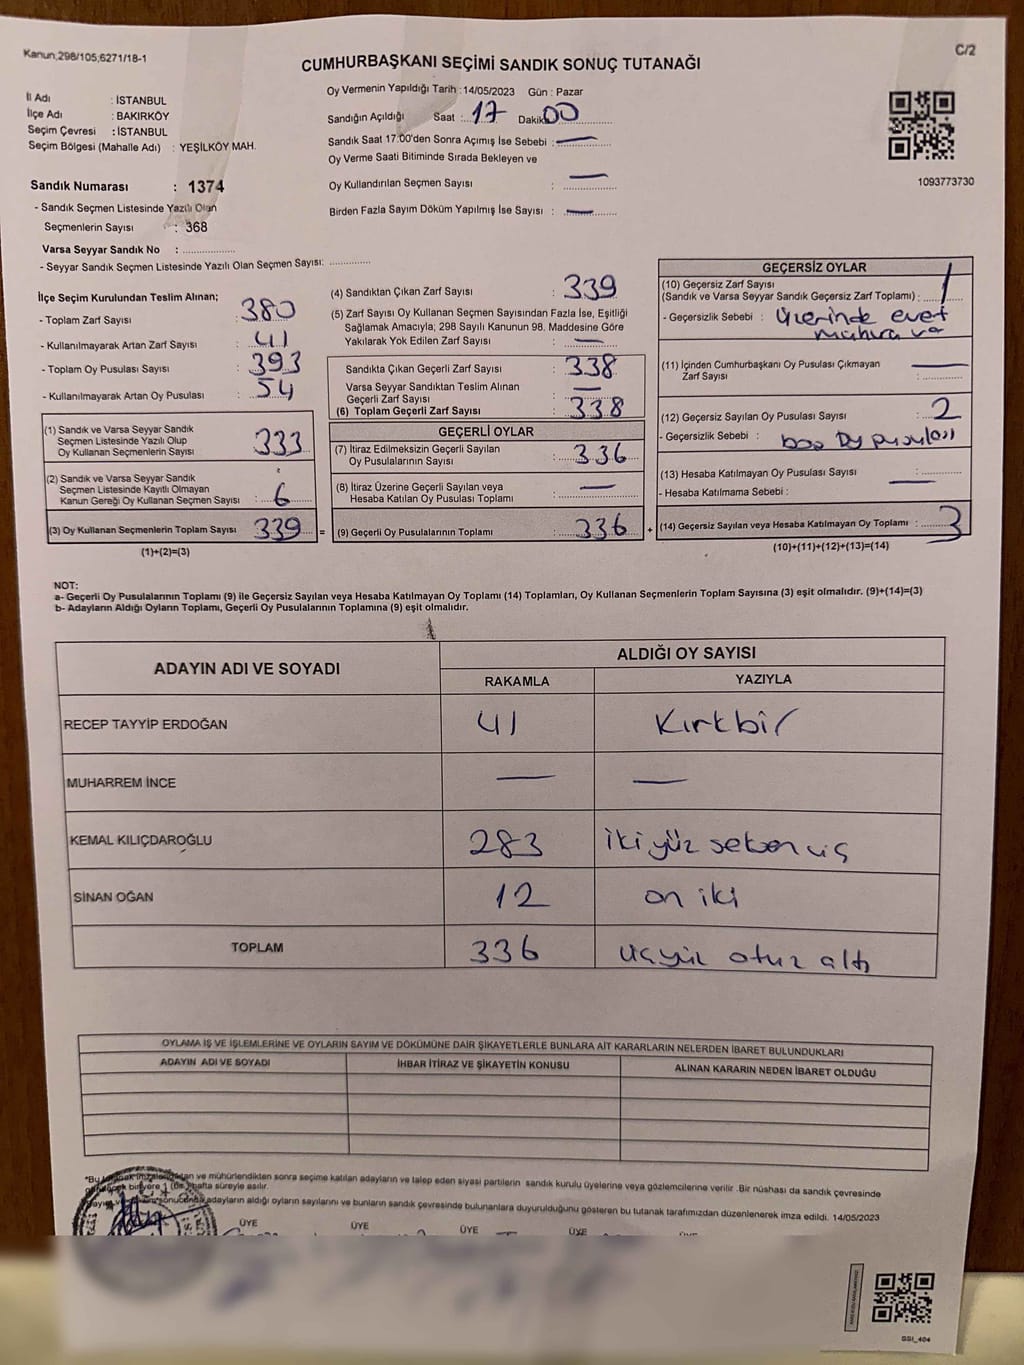 Kanun;298/105;6271/18-1
C/2
CUMHURBAŞKANI SEÇİMİ SANDIK SONUÇ TUTANAĞI
İl Adı : İSTANBUL
İlçe Adı : BAKIRKÖY
Seçim Çevresi : İSTANBUL
Seçim Bölgesi (Mahalle Adı) : YEŞİLKÖY MAH.
Sandık Numarası : 1374
- Sandık Seçmen Listesinde Yazılı Olan
Seçmenlerin Sayısı : 368
Varsa Seyyar Sandık No : ................
- Seyyar Sandık Seçmen Listesinde Yazılı Olan Seçmen Sayısı: ............
Oy Vermenin Yapıldığı Tarih : 14/05/2023 Gün : Pazar
Sandığın Açıldığı Saat : 17 Dakika 00
Sandık Saat 17:00'den Sonra Açımış İse Sebebi : —
Oy Verme Saati Bitiminde Sırada Bekleyen ve
Oy Kullandırılan Seçmen Sayısı : —
Birden Fazla Sayım Döküm Yapılmış İse Sayısı : —
1093773730
İlçe Seçim Kurulundan Teslim Alınan;
- Toplam Zarf Sayısı : 380
- Kullanılmayarak Artan Zarf Sayısı : 41
- Toplam Oy Pusulası Sayısı : 393
- Kullanılmayarak Artan Oy Pusulası : 54
(1) Sandık ve Varsa Seyyar Sandık
Seçmen Listesinde Yazılı Olup
Oy Kullanan Seçmenlerin Sayısı : 333
(2) Sandık ve Varsa Seyyar Sandık
Seçmen Listesinde Kayıtlı Olmayan
Kanun Gereği Oy Kullanan Seçmen Sayısı : 6
(3) Oy Kullanan Seçmenlerin Toplam Sayısı 339 =
(1)+(2)=(3)
(4) Sandıktan Çıkan Zarf Sayısı : 339
(5) Zarf Sayısı Oy Kullanan Seçmen Sayısından Fazla İse, Eşitliği
Sağlamak Amacıyla; 298 Sayılı Kanunun 98. Maddesine Göre
Yakılarak Yok Edilen Zarf Sayısı : —
Sandıkta Çıkan Geçerli Zarf Sayısı : 338
Varsa Seyyar Sandıktan Teslim Alınan
Geçerli Zarf Sayısı : —
(6) Toplam Geçerli Zarf Sayısı : 338
GEÇERLİ OYLAR
(7) İtiraz Edilmeksizin Geçerli Sayılan
Oy Pusulalarının Sayısı : 336
(8) İtiraz Üzerine Geçerli Sayılan veya
Hesaba Katılan Oy Pusulası Toplamı : —
(9) Geçerli Oy Pusulalarının Toplamı : 336 +
GEÇERSİZ OYLAR
(10) Geçersiz Zarf Sayısı
(Sandık ve Varsa Seyyar Sandık Geçersiz Zarf Toplamı) : 1
- Geçersizlik Sebebi : Üzerinde evet
mührü var
(11) İçinden Cumhurbaşkanı Oy Pusulası Çıkmayan
Zarf Sayısı : —
(12) Geçersiz Sayılan Oy Pusulası Sayısı : 2
- Geçersizlik Sebebi : boş oy pusulası
(13) Hesaba Katılmayan Oy Pusulası Sayısı : —
- Hesaba Katılmama Sebebi :
(14) Geçersiz Sayılan veya Hesaba Katılmayan Oy Toplamı : 3
(10)+(11)+(12)+(13)=(14)
NOT:
a- Geçerli Oy Pusulalarının Toplamı (9) ile Geçersiz Sayılan veya Hesaba Katılmayan Oy Toplamı (14) Toplamları, Oy Kullanan Seçmenlerin Toplam Sayısına (3) eşit olmalıdır. (9)+(14)=(3)
b- Adayların Aldığı Oyların Toplamı, Geçerli Oy Pusulalarının Toplamına (9) eşit olmalıdır.
ADAYIN ADI VE SOYADI
ALDIĞI OY SAYISI
RAKAMLA YAZIYLA
RECEP TAYYİP ERDOĞAN 41 Kırkbir
MUHARREM İNCE — —
KEMAL KILIÇDAROĞLU 283 ikiyüz seksen üç
SİNAN OĞAN 12 on iki
TOPLAM 336 üçyüz otuz altı
OYLAMA İŞ VE İŞLEMLERİNE VE OYLARIN SAYIM VE DÖKÜMÜNE DAİR ŞİKAYETLERLE BUNLARA AİT KARARLARIN NELERDEN İBARET BULUNDUKLARI
ADAYIN ADI VE SOYADI İHBAR İTİRAZ VE ŞİKAYETİN KONUSU ALINAN KARARIN NEDEN İBARET OLDUĞU
ve mühürlendikten sonra seçime katılan adayların ve talep eden siyasi partilerin sandık kurulu üyelerine veya gözlemcilerine verilir .Bir nüshası da sandık çevresinde
bir yere 1 (bir) hafta süreyle asılır.
adayların aldığı oyların sayılarını ve bunların sandık çevresinde bulunanlara duyurulduğunu gösteren bu tutanak tarafımızdan düzenlenerek imza edildi. 14/05/2023
ÜYE ÜYE ÜYE ÜYE
SSI_404